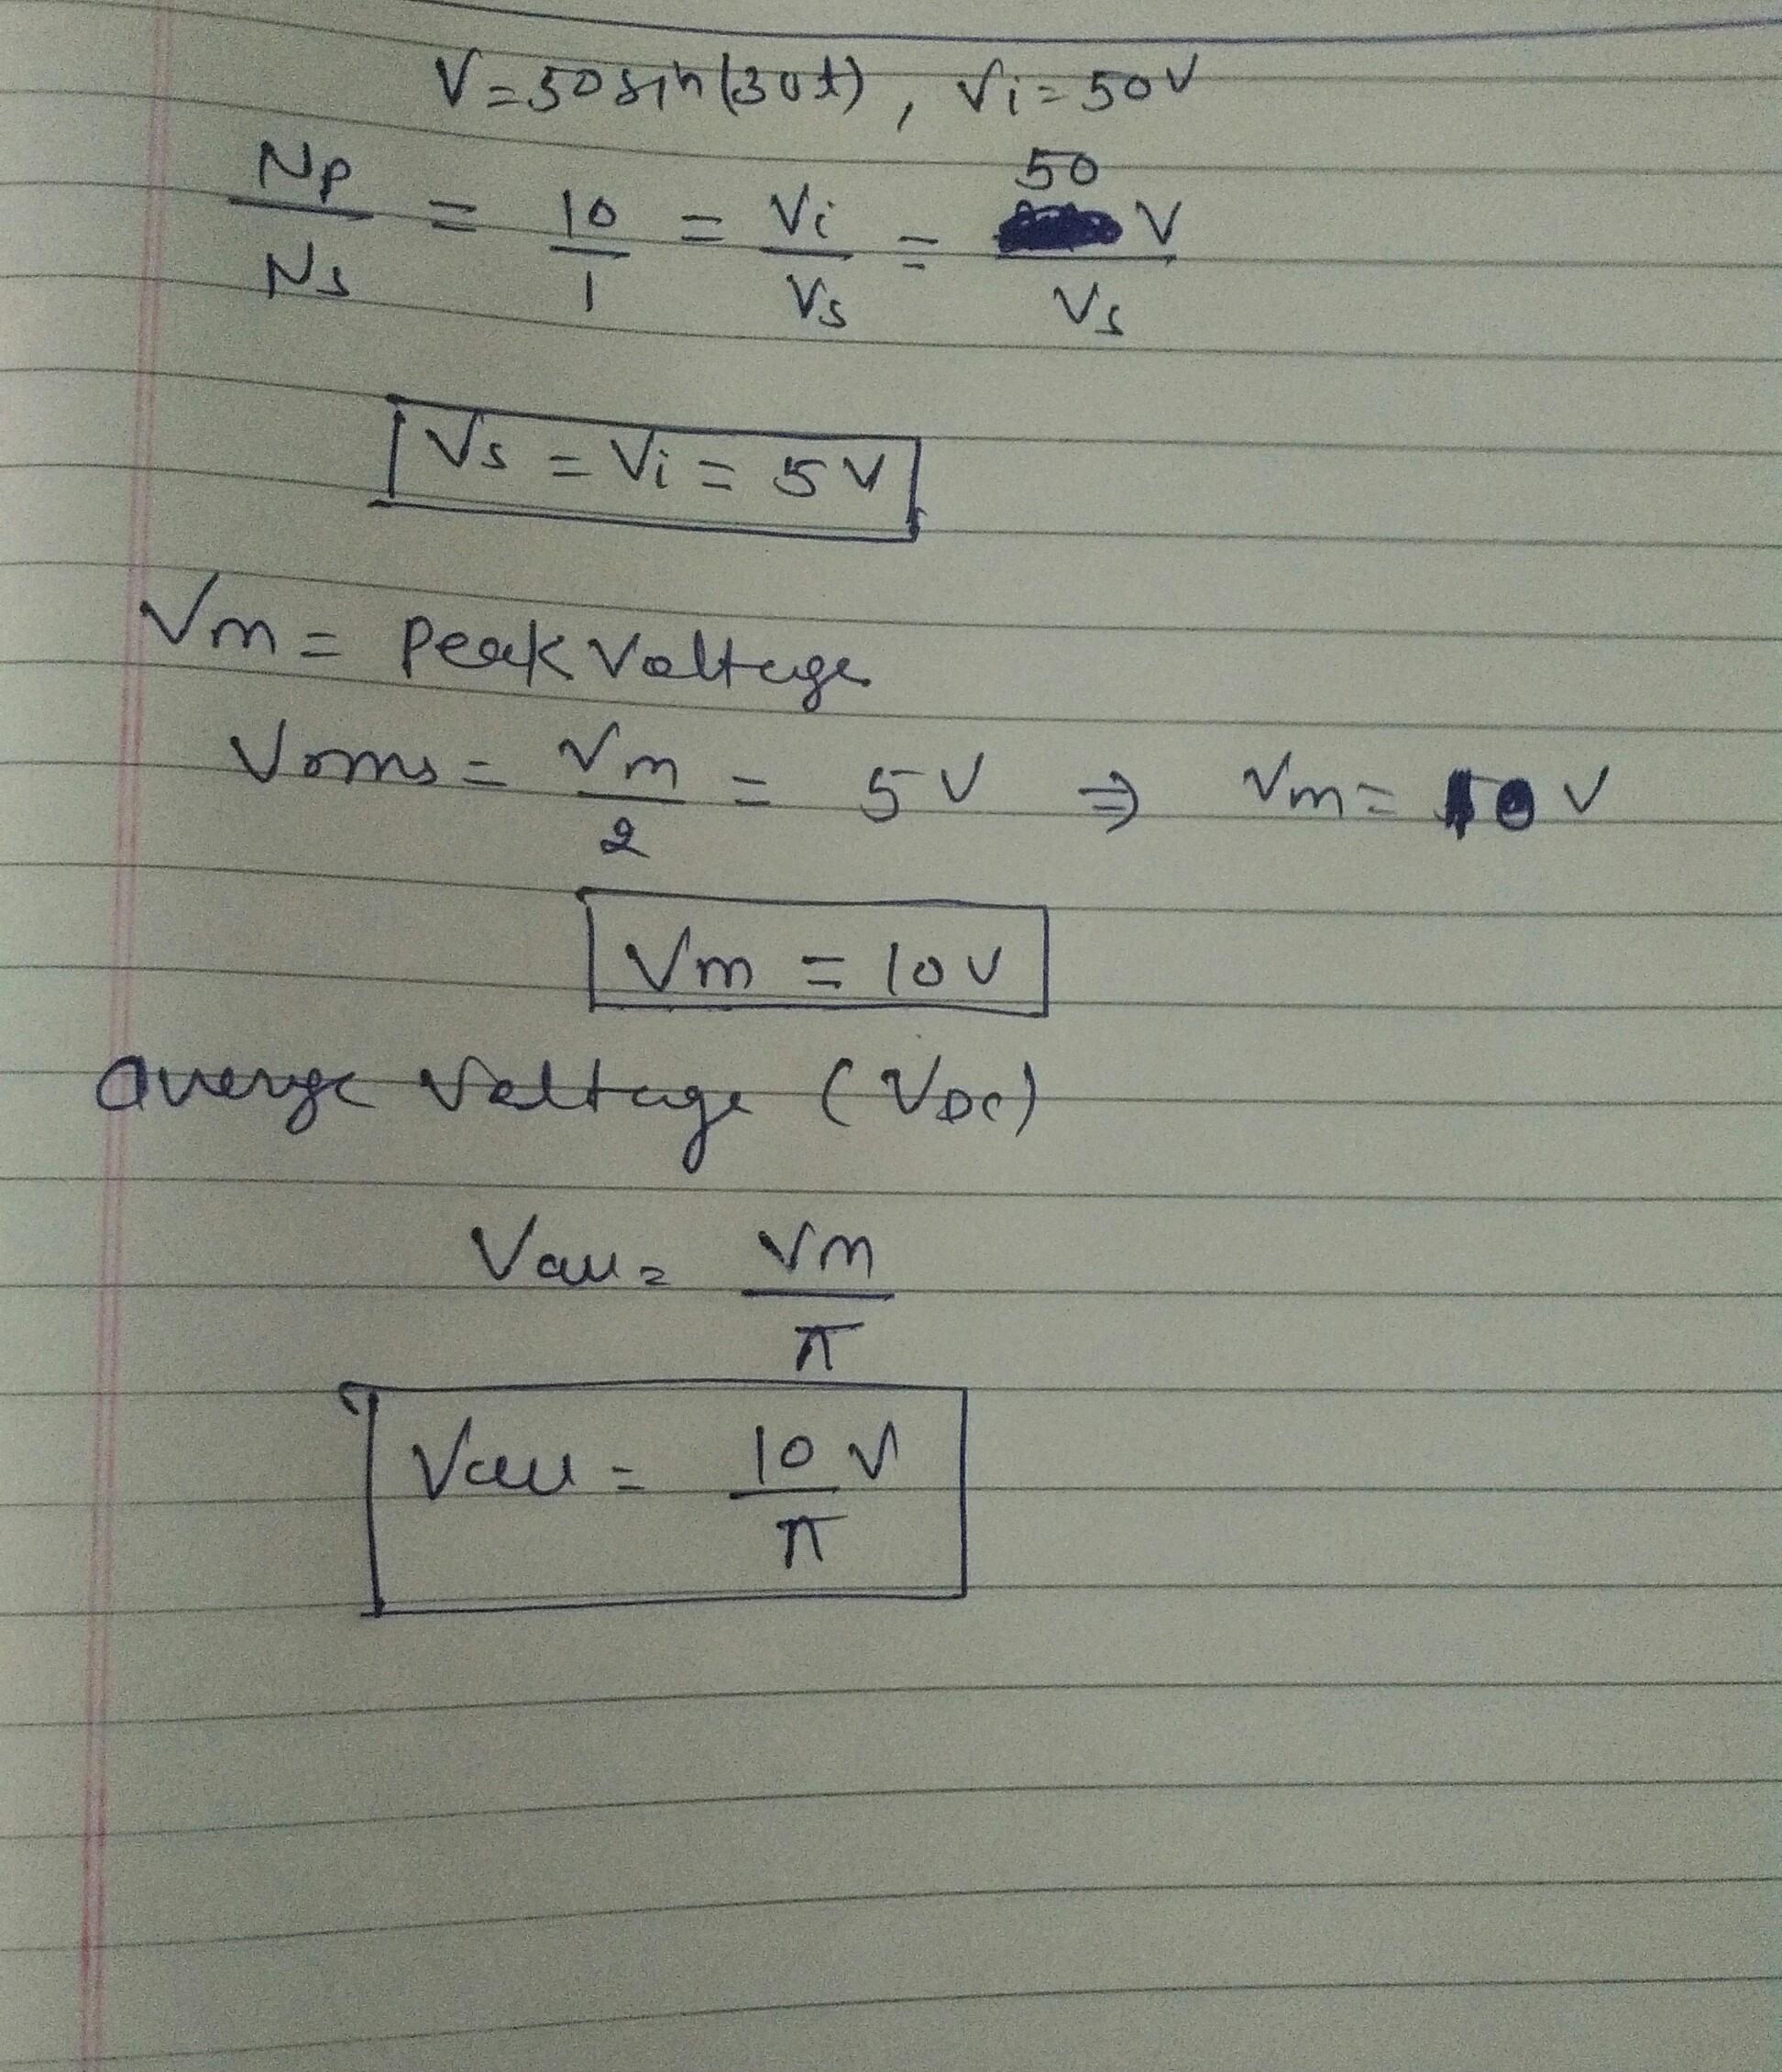 V=50 sin(30t), Vi=50V
Np/Ns = 10/1 = Vi/Vs = 50V/Vs
Vs = Vi = 5V
Vm = Peak Voltage
Vrms = Vm/2 = 5V ⇒ Vm = 10V
Vm = 10V
Average Voltage (VDC)
Vav = Vm/π
Vav = 10V/π